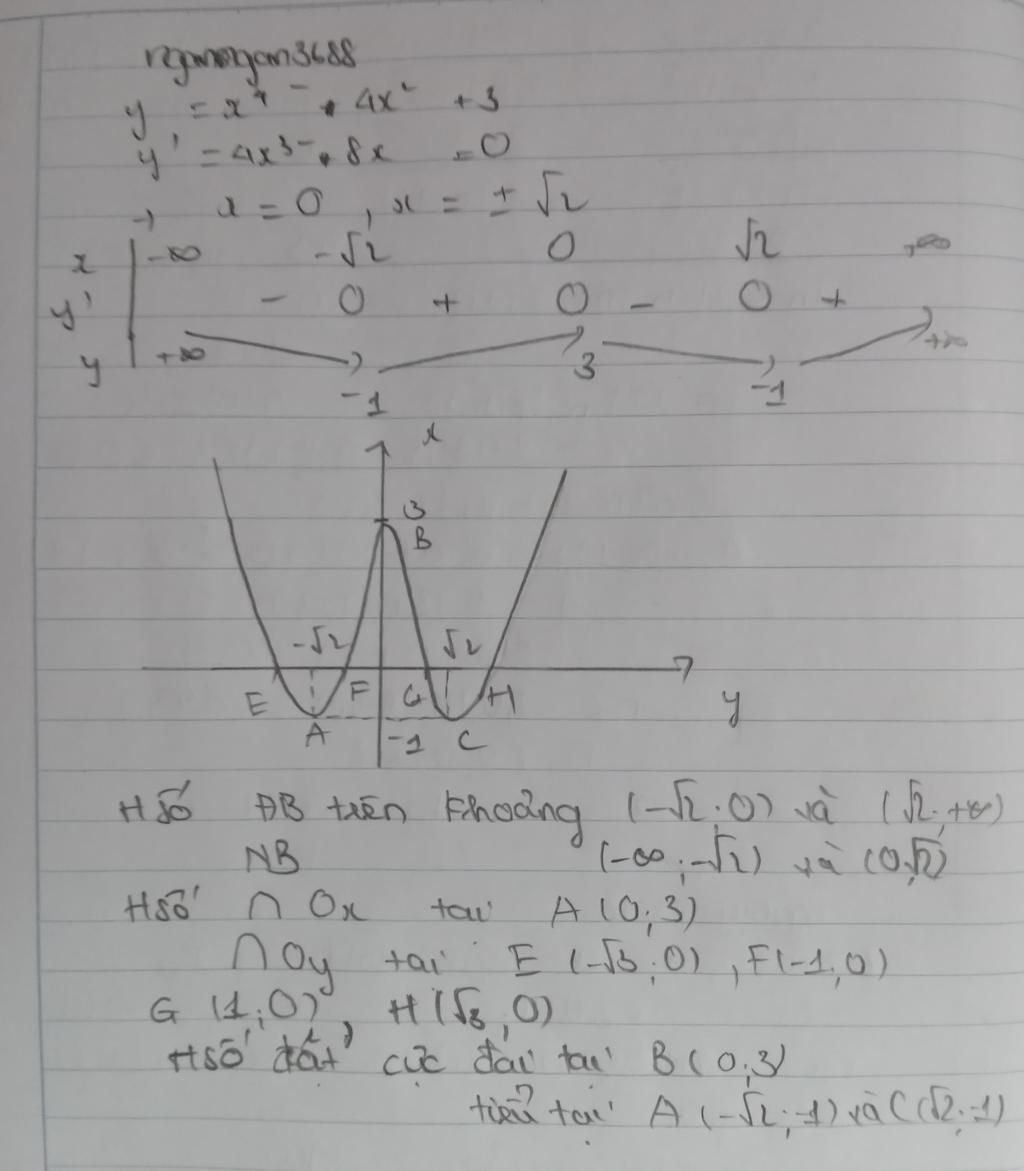 nganngan3688
y = x⁴ - 4x² + 3
y' = 4x³ - 8x = 0
→ x = 0, x = ± √2
x -∞ -√2 0 √2 +∞
y' - 0 + 0 - 0 +
y +∞ -1 3 -1 +∞
x
3
B
-√2 √2
E F G H y
A -1 C
H số ĐB trên khoảng (-√2; 0) và (√2; +∞)
NB (-∞; -√2) và (0;√2)
H số ∩ Ox tại A (0; 3)
∩ Oy tại E (-√3; 0), F(-1; 0)
G (1; 0), H (√3; 0)
H số đạt cực đại tại B (0; 3)
tiểu tại A (-√2; -1) và C (√2; -1)